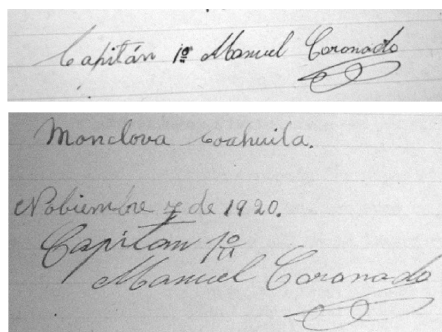 Capitán 1º Manuel Coronado
Monclova Coahuila.
Nobiembre 7 de 1920.
Capitan 1º
Manuel Coronado